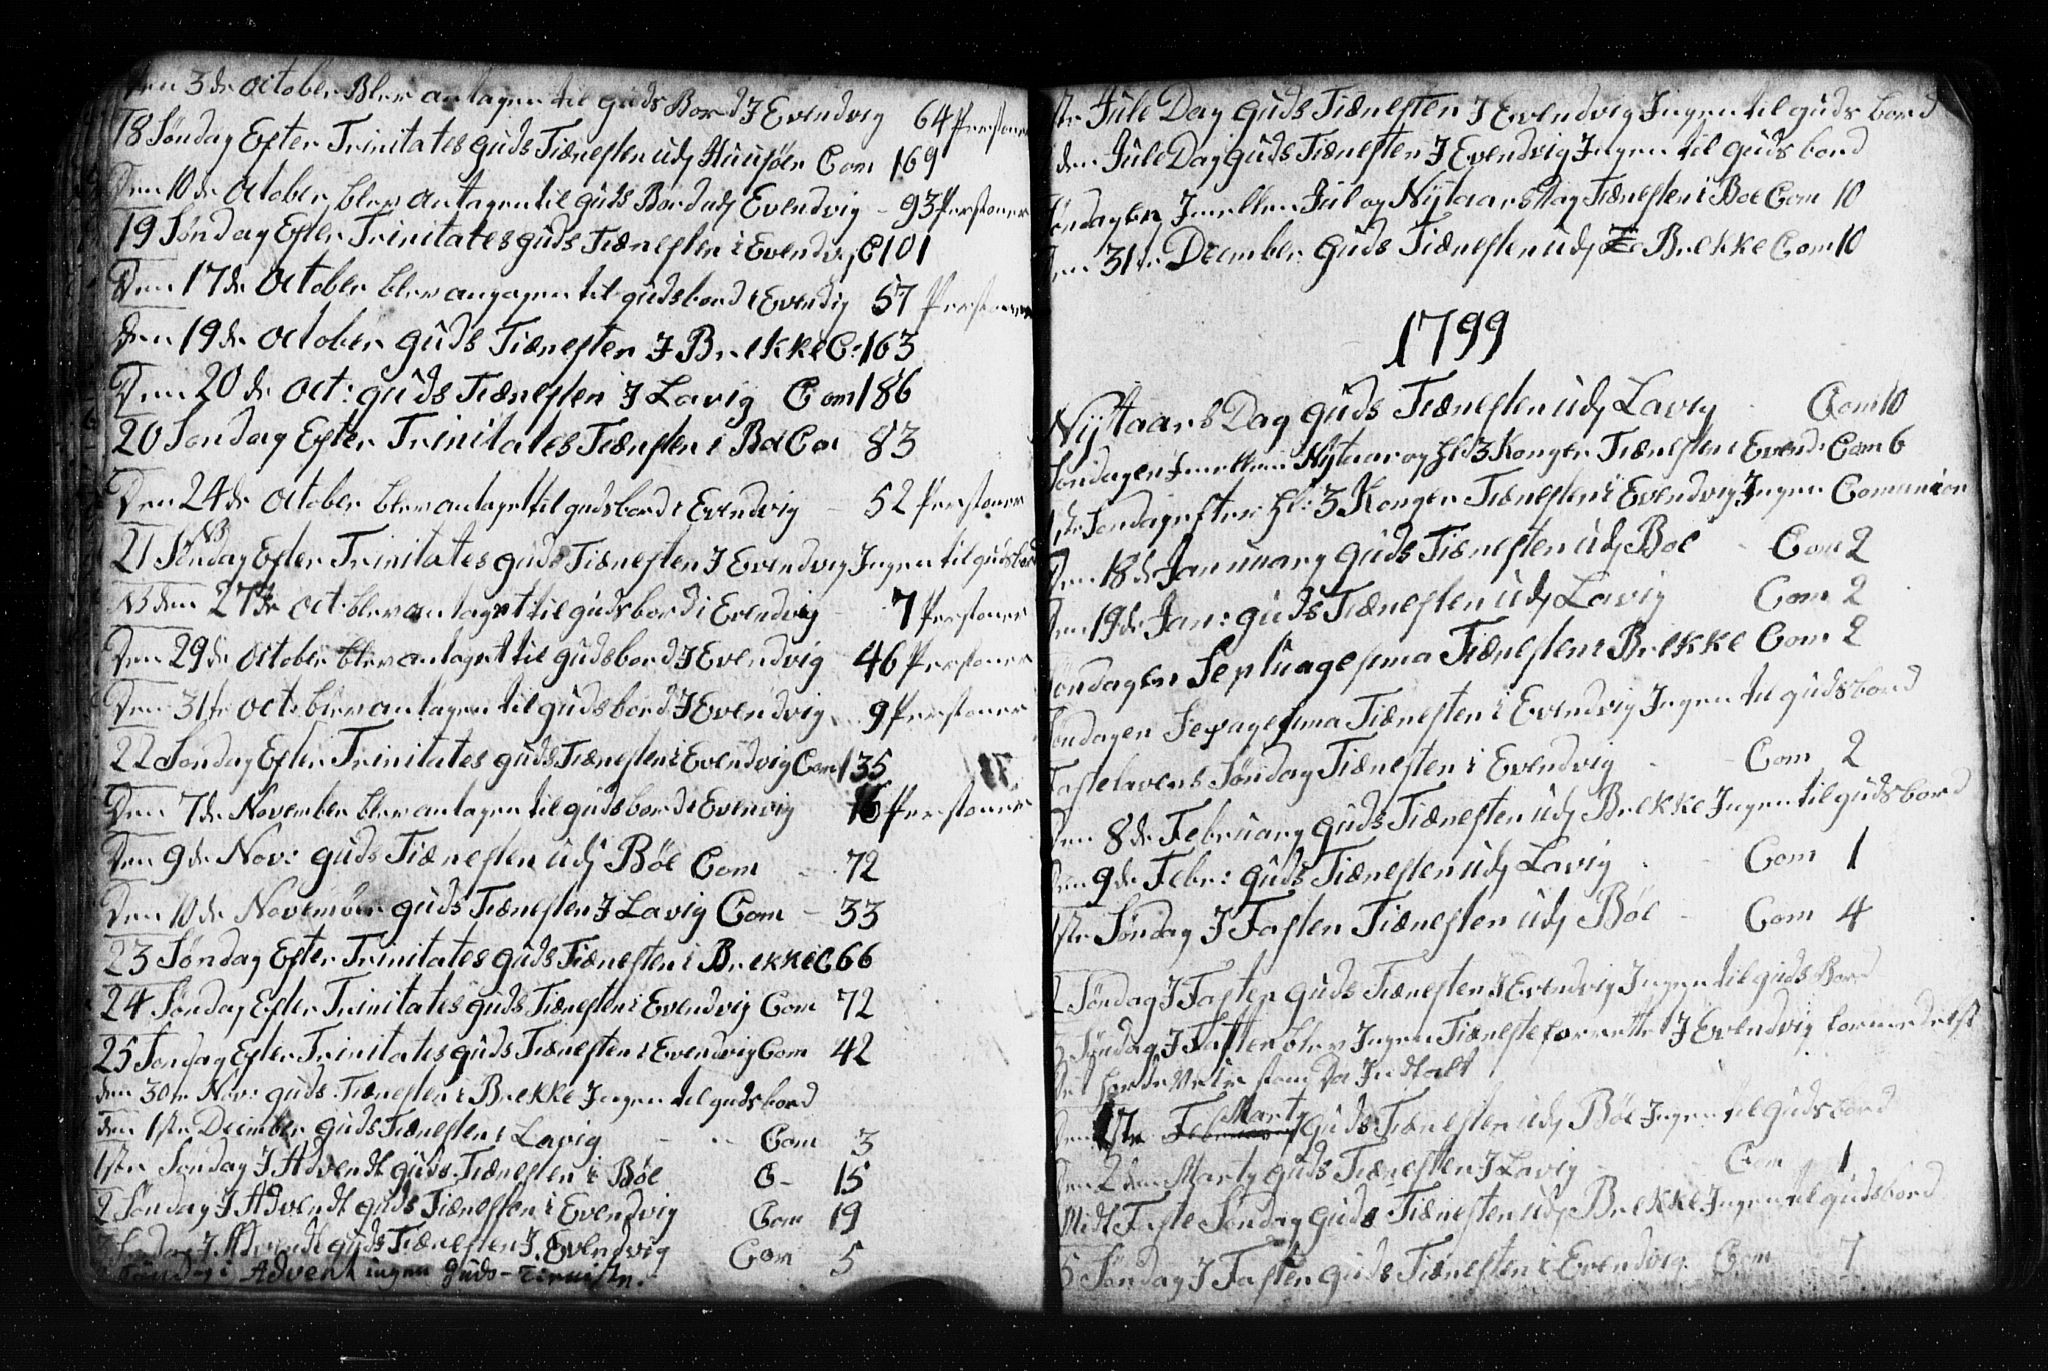 Den 3de October Blev antagen til Guds Bord J Evendvig 64 Personer
18 Søndag Efter Trinitates Guds Tiænesten udj Huusøen Com 169
Den 10de October blev Antagen til Guds Bord udj Evendvig - 93 Personer
19 Søndag Efter Trinitates Guds Tiænesten i Evendvig C 101
Den 17de October blev angagen til gudsbord i Evendig 57 Personer
Den 19de October Guds Tiænesten J Brekke C: 163
Den 20de Oct: Guds Tiænesten J Lavig Com 186
20 Søndag Efter Trinitates Tiænsten i Bø Com 83
Den 24de October blev antaget til gudsbord i Evendvig - 52 Personer
NB
21 Søndag Efter Trinitates Guds Tiænesten J Evendvig Jngen til gudsbord
NB den 27de Oct: blev antaget til gudsbord i Evendvig - 7 Personer
Den 29de October blev antaget til gudsbord J Evendvig 46 Personer
Den 31te Oct: blev antagen til gudsbord J Evendvig 9 Personer
22 Søndag Efter Trinitates Guds Tiænesten i Evendvig Com 135
Den 7de November blev antagen til gudsbord i Evenvig 16 Personer
Den 9de Nov: Guds Tiænesten Udj Bøe Com - 72
Den 10de November Guds Tiænesten J Lavig Com - 33
23 Søndag Efter Trinitates Guds Tiænesten i Brekke C 66
24 Søndag Efter Trinitates Guds Tiænesten i Evendvig Com 72
25 Søndag Efter Trinitates Guds Tiænesten i Evendvig Com 42
den 30te Nov: Guds Tiænesten i Brekke Jngen til gudsbord
den 1ste December Guds Tiænesten i Lavig - - Com 3
1ste Søndag J Advendt Guds Tiænesten i Bøe C - 15
2 Søndag J Advendt Guds Tiænesten i Evendvig Com 19
Søndag J Advendt Guds Tiænesten J Evendvig Com 5
Søndag i Advent ingen Guds-Tieniste.
ste Jule Dag Guds Tiænesten J Evendvig Jngen til guds bord
den Jule Dag Guds Tiænesten J Evendvig Jngen til guds bord
Søndagen Jmellem Jul og Nÿtaarsdag Tiænesten i Boe Com 10
Den 31te December Guds Tiænesten udj Brekke Com 10
1799
Nÿtaars Dag Guds Tiænesten udj Lavig - Com 10
Søndagen Jmellem Nÿtaar og Hl: 3 Konger Tiænesten i Evend: Com 6
1ste Søndag efter Hl: 3 Konger Tiænesten i Evendvig Jngen Comunion
Den 18de Januuarÿ Guds Tiænesten Udj Boe - Com 2
Den 19de Jan: Guds Tiænesten udj Lavig Com 2
Søndagen Septuagesima Tiænesten i Brekke Com 2
Søndagen Sexagesima Tiænesten i Evendvig Jngen til gudsbord
Fastelavens Søndag Tiænesten i Evendvig - - Com 2
Den 8de Februarÿ Guds Tiænesten udj Brekke Jngen til gudsbord
Den 9de Febr: Guds Tiænesten udj Lavig - - Com 1
1ste Søndag J Fasten Tiænesten udj Bøe - Com 4
2 Søndag J Fasten Guds Tiænesten J Evendvig Jngen til guds Bord
3 Søndag J Fasten blev Jngen Tiæneste forrettet J Evendvig formedelst
Det haarde Veir som da Jndtalt
Martÿ
Den 1ste Februarÿ Guds Tiænesten udj Bøe Jngen til Guds bord
Den 2den Martÿ Guds Tiænesten J Lavig - Com 1
Midt Faste Søndag Guds Tiænesten udj Brekke Jngen til gudsbord
5 Søndag J Fasten Guds Tiænesten i Evendvig Com 7